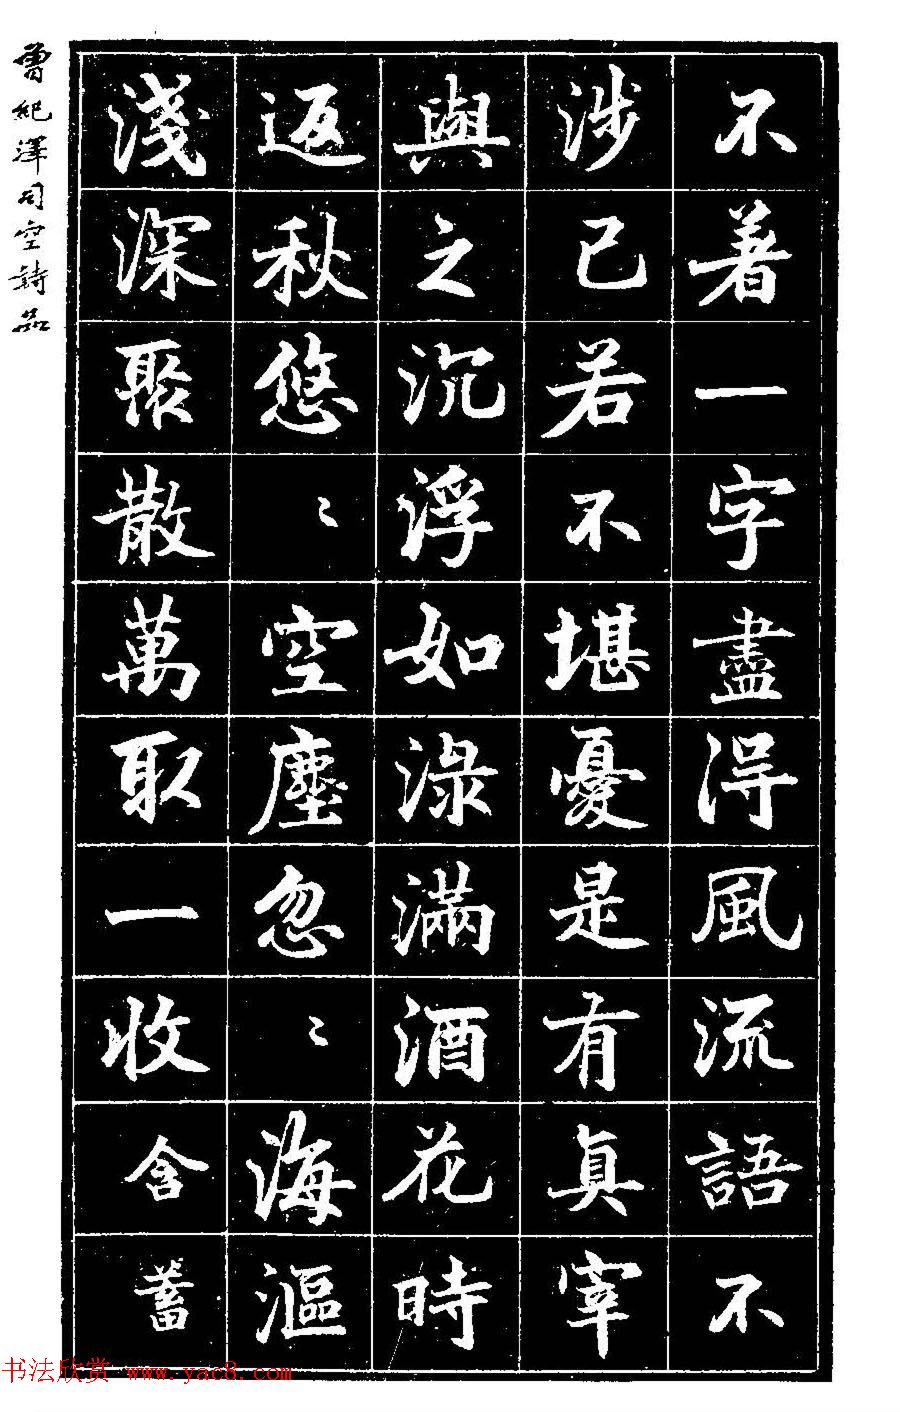 不著一字盡淂風流語不
涉已若不堪憂是有真宰
與之沉浮如淥滿酒花時
返秋悠〻空塵忽〻海漚
淺深聚散萬取一收含蓄
曾紀澤司空詩品
书法欣赏 www.yac8.com